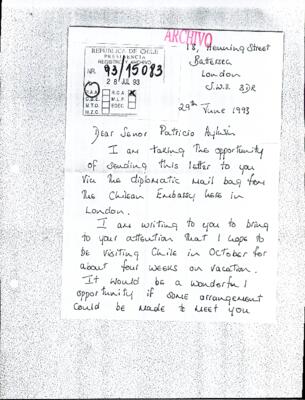 ARCHIVO
REPUBLICA DE CHILE
PRESIDENCIA
REGISTRO Y ARCHIVO
NR. 93/15083
28 JUL 93
P.A.A. R.C.A. X
C.B.E. M.L.P.
M.T.O. EDEC
M.Z.C.
18, Henning Street
Battersea
London
S.W.11 3DR
29th June 1993
Dear Senor Patricio Aylwin
I am taking the opportunity
of sending this letter to you
via the diplomatic mail bag from
the Chilean Embassy here in
London.
I am writing to you to bring
to your attention that I hope to
be visiting Chile in October for
about four weeks on vacation.
It would be a wonderful
opportunity if some arrangement
could be made to meet you